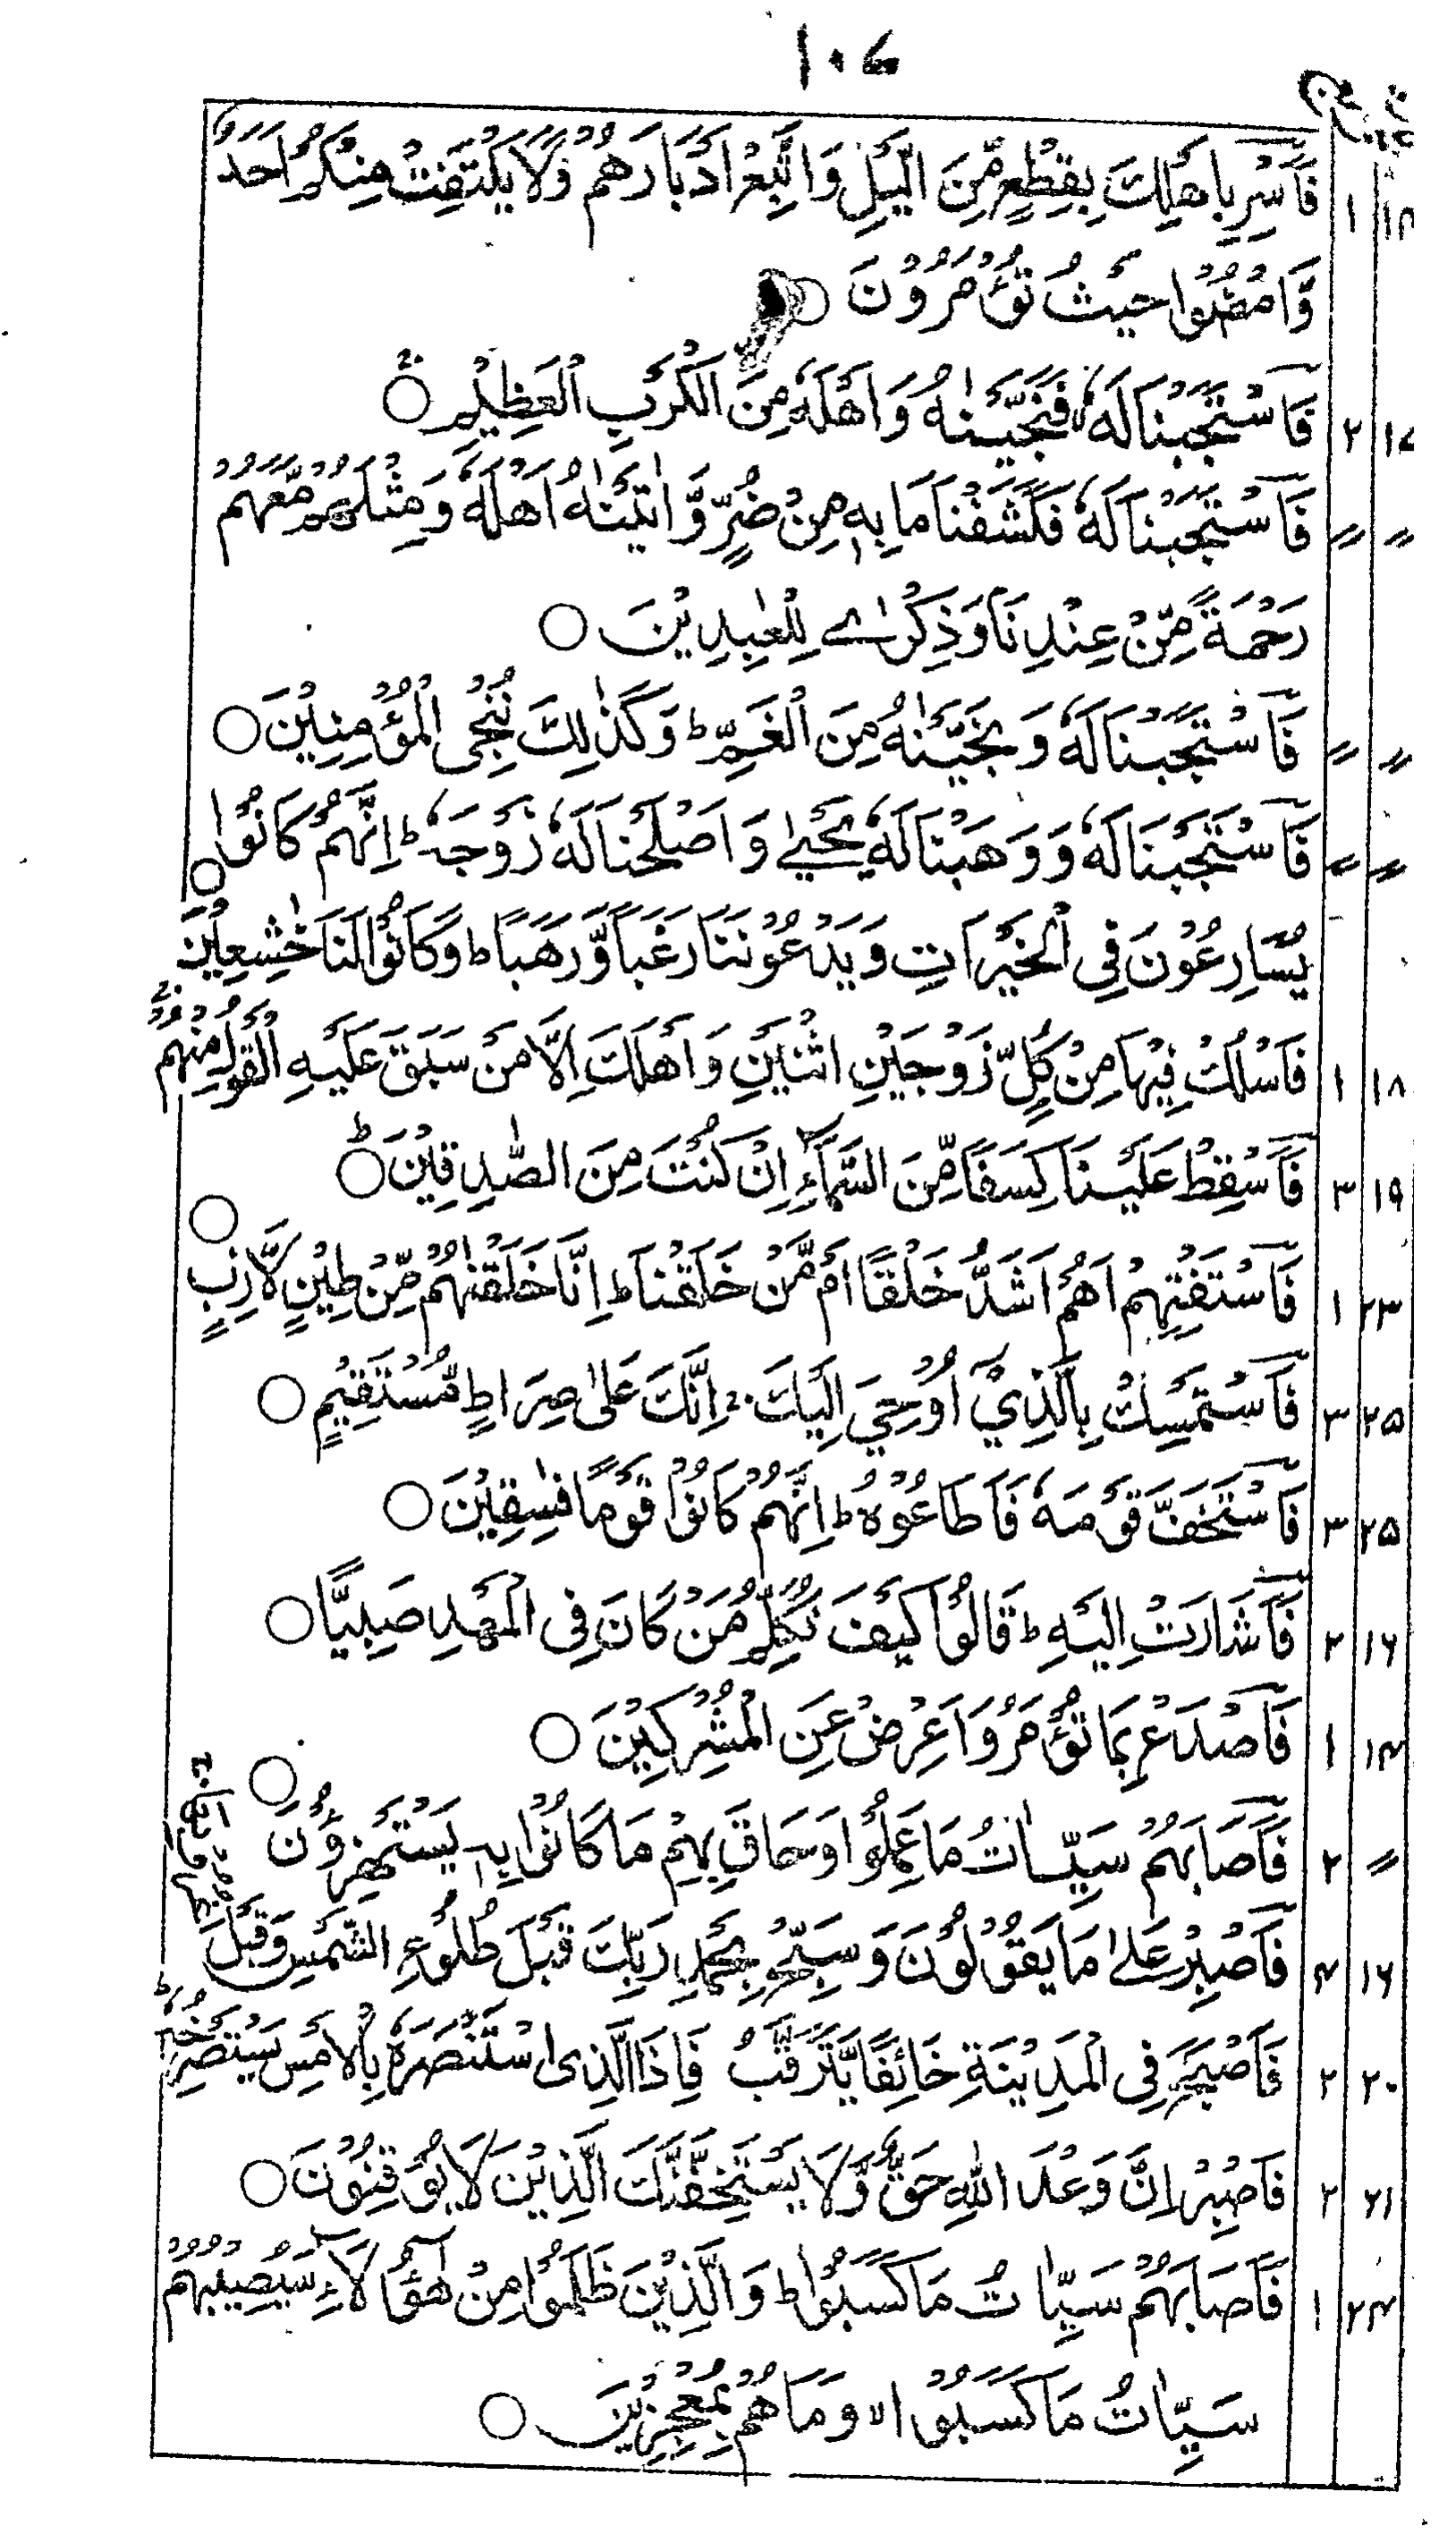 ۱۰۷
فَاَسْرِ بِاَهْلِكَ بِقِطْعٍ مِّنَ الَّيْلِ وَاتَّبِعْ اَدْبَارَهُمْ وَلَا يَلْتَفِتْ مِنْكُمْ اَحَدٌ ۱ ۱۴
وَّامْضُوْا حَيْثُ تُؤْمَرُوْنَ ○
فَاسْتَجَبْنَا لَهٗ فَنَجَّيْنٰهُ وَاَهْلَهٗ مِنَ الْكَرْبِ الْعَظِيْمِ ○ ۲ ۱۷
فَاسْتَجَبْنَا لَهٗ فَكَشَفْنَا مَا بِهٖ مِنْ ضُرٍّ وَّاٰتَيْنٰهُ اَهْلَهٗ وَمِثْلَهُمْ مَّعَهُمْ 〃 〃
رَحْمَةً مِّنْ عِنْدِنَا وَذِكْرٰى لِلْعٰبِدِيْنَ ○
فَاسْتَجَبْنَا لَهٗ وَنَجَّيْنٰهُ مِنَ الْغَمِّ ط وَكَذٰلِكَ نُنْجِى الْمُؤْمِنِيْنَ ○ 〃 〃
فَاسْتَجَبْنَا لَهٗ وَوَهَبْنَا لَهٗ يَحْيٰى وَاَصْلَحْنَا لَهٗ زَوْجَهٗ ط اِنَّهُمْ كَانُوْا 〃 〃
يُسَارِعُوْنَ فِى الْخَيْرَاتِ وَيَدْعُوْنَنَا رَغَبًا وَّرَهَبًا ط وَكَانُوْا لَنَا خٰشِعِيْنَ ○
فَاسْلُكْ فِيْهَا مِنْ كُلٍّ زَوْجَيْنِ اثْنَيْنِ وَاَهْلَكَ اِلَّا مَنْ سَبَقَ عَلَيْهِ الْقَوْلُ مِنْهُمْ ۱ ۱۸
فَاَسْقِطْ عَلَيْنَا كِسَفًا مِّنَ السَّمَآءِ اِنْ كُنْتَ مِنَ الصّٰدِقِيْنَ ○ ط ۳ ۱۹
فَاسْتَفْتِهِمْ اَهُمْ اَشَدُّ خَلْقًا اَمْ مَّنْ خَلَقْنَا ط اِنَّا خَلَقْنٰهُمْ مِّنْ طِيْنٍ لَّازِبٍ ○ ۱ ۲۳
فَاسْتَمْسِكْ بِالَّذِيْٓ اُوْحِيَ اِلَيْكَ ج اِنَّكَ عَلٰى صِرَاطٍ مُّسْتَقِيْمٍ ○ ۳ ۲۵
فَاسْتَخَفَّ قَوْمَهٗ فَاَطَاعُوْهُ ط اِنَّهُمْ كَانُوْا قَوْمًا فٰسِقِيْنَ ○ ۳ ۲۵
فَاَشَارَتْ اِلَيْهِ ط قَالُوْا كَيْفَ نُكَلِّمُ مَنْ كَانَ فِى الْمَهْدِ صَبِيًّا ○ ۲ ۱۶
فَاصْدَعْ بِمَا تُؤْمَرُ وَاَعْرِضْ عَنِ الْمُشْرِكِيْنَ ○ ۱ ۱۴
فَاَصَابَهُمْ سَيِّاٰتُ مَا عَمِلُوْا وَحَاقَ بِهِمْ مَا كَانُوْا بِهٖ يَسْتَهْزِءُوْنَ ○ ۲ 〃
فَاصْبِرْ عَلٰى مَا يَقُوْلُوْنَ وَسَبِّحْ بِحَمْدِ رَبِّكَ قَبْلَ طُلُوْعِ الشَّمْسِ وَقَبْلَ غُرُوْبِهَا ج ۴ ۱۶
فَاَصْبَحَ فِى الْمَدِيْنَةِ خَائِفًا يَّتَرَقَّبُ فَاِذَا الَّذِى اسْتَنْصَرَهٗ بِالْاَمْسِ يَسْتَصْرِخُهٗ ط ۲ ۲۰
فَاصْبِرْ اِنَّ وَعْدَ اللّٰهِ حَقٌّ وَّلَا يَسْتَخِفَّنَّكَ الَّذِيْنَ لَا يُوْقِنُوْنَ ○ ۲ ۲۱
فَاَصَابَهُمْ سَيِّاٰتُ مَا كَسَبُوْا ط وَالَّذِيْنَ ظَلَمُوْا مِنْ هٰٓؤُلَآءِ سَيُصِيْبُهُمْ ۱ ۲۴
سَيِّاٰتُ مَا كَسَبُوْا لا وَمَا هُمْ بِمُعْجِزِيْنَ ○